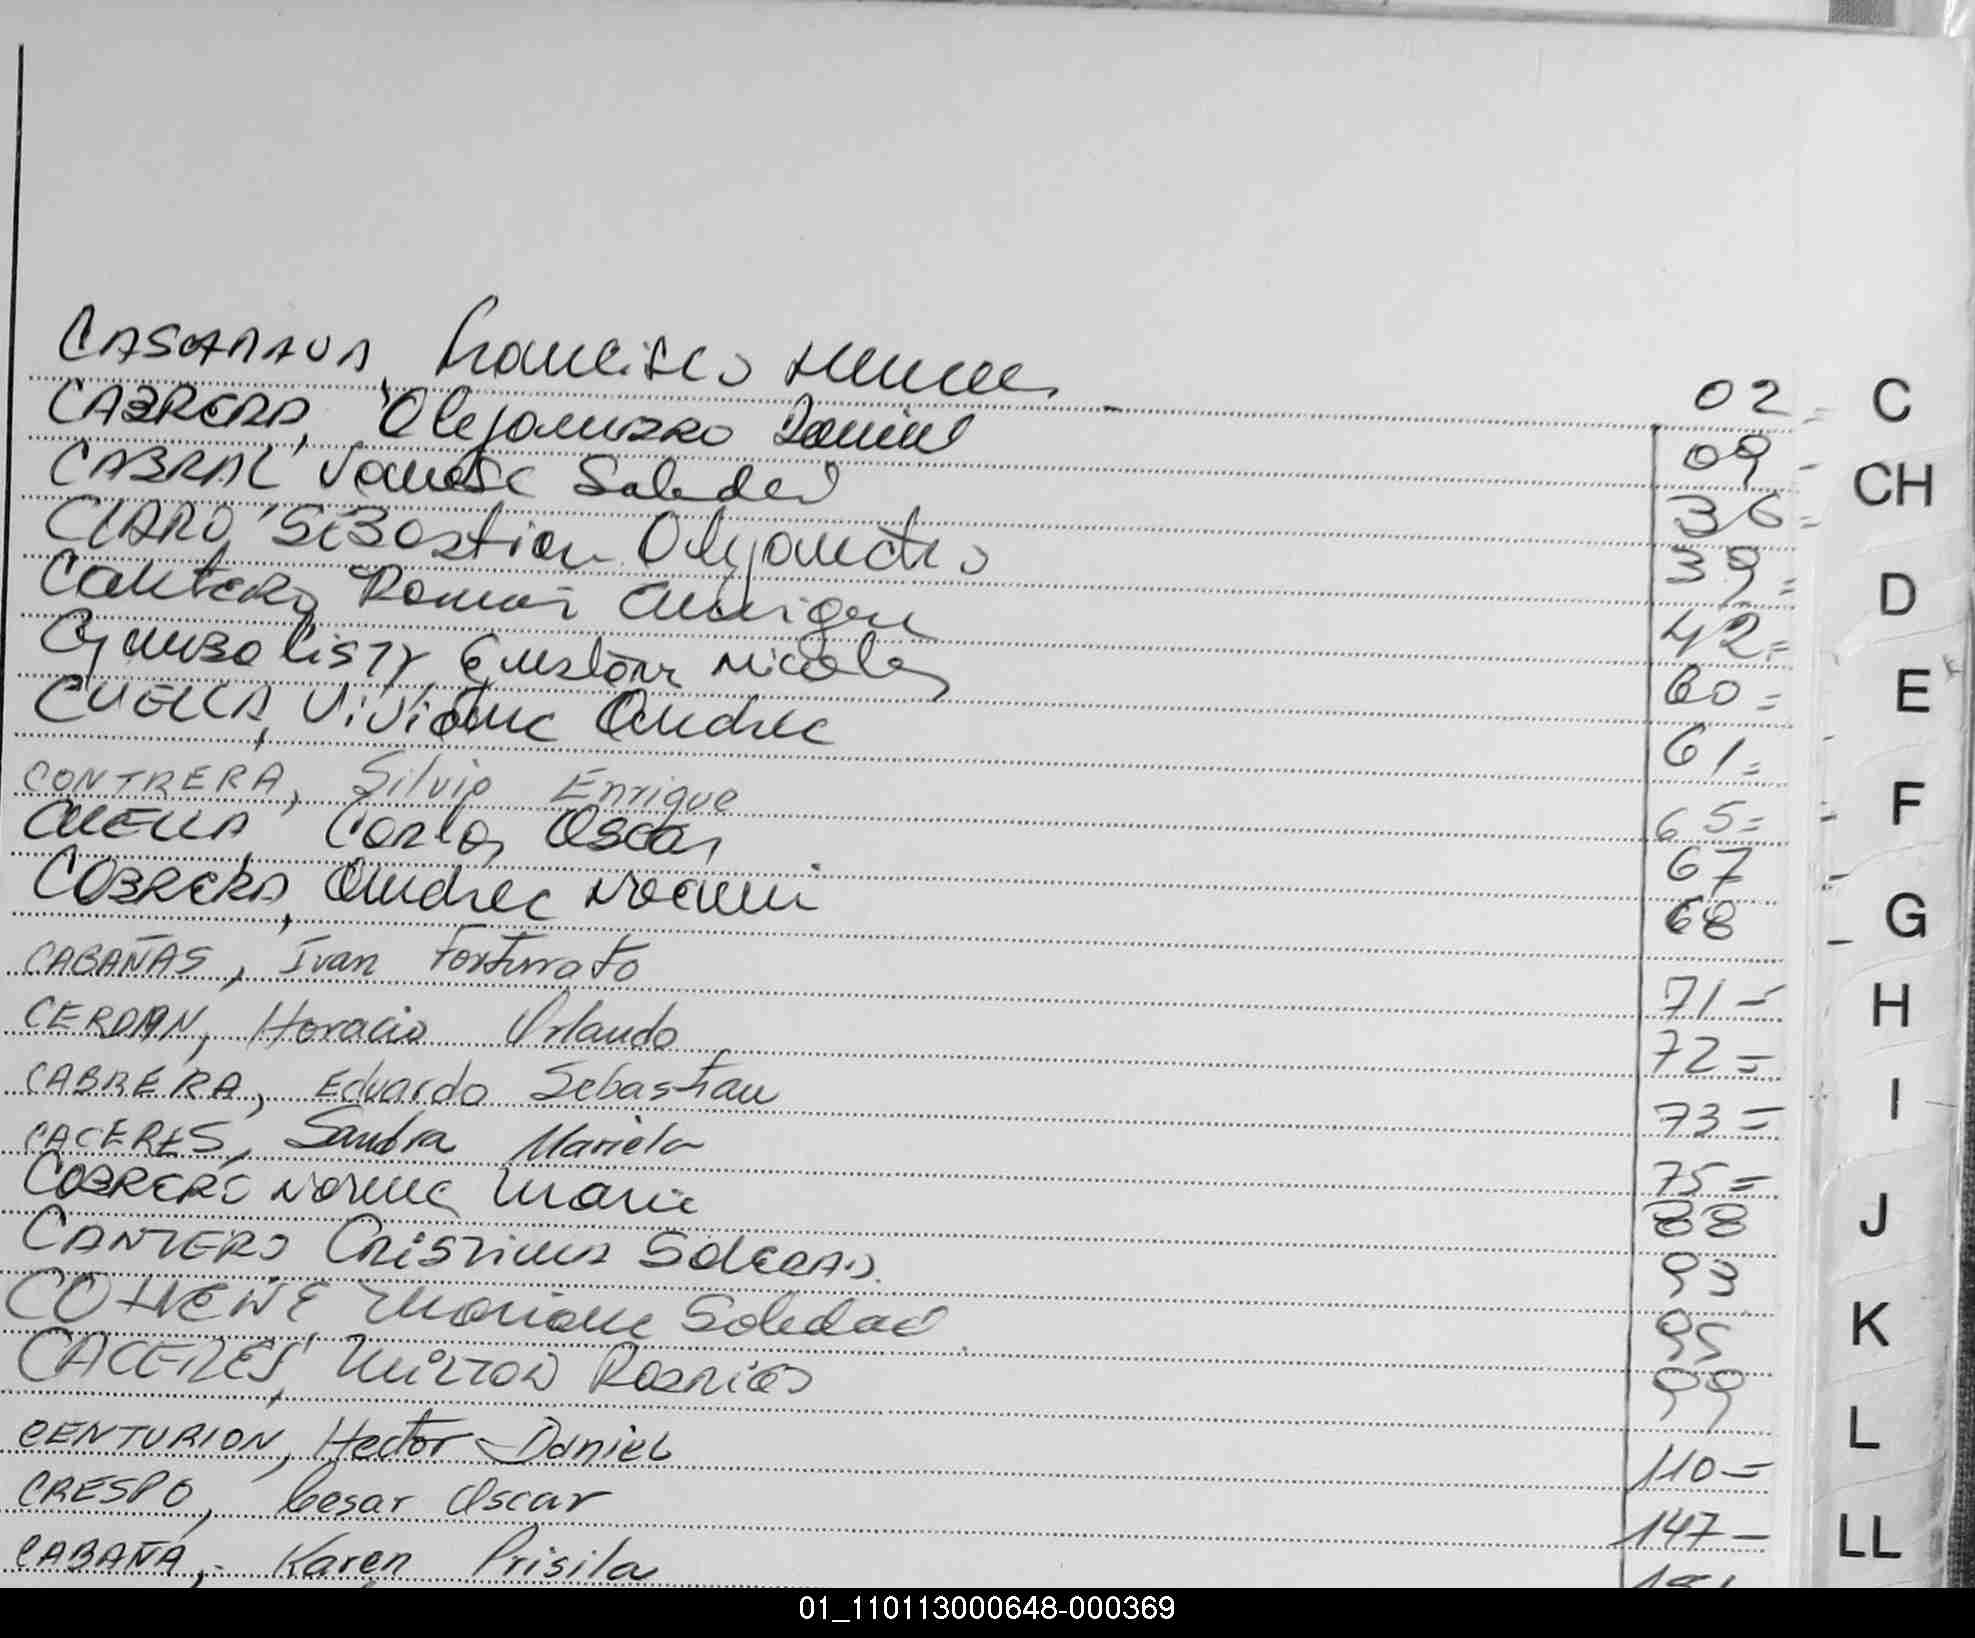 Francisco 02
CABRERA, Alejandro Daniel 09
CABRAL Soledad 36
CLARO, Sebastian Alejandro 39
Cantero, Roman 42
Cymbalisty Gustavo Nicolas 60
CUELLA, Viviana Andrea 61
CONTRERA, Silvio Enrique 65
CUELLA, Carlos Oscar 67
CABRERA, Andrea Noemi 68
CABAÑAS, Ivan Fortunato 71
CERDAN, Horacio Orlando 72
CABRERA, Eduardo Sebastian 73
CACERES, Sandra Mariela 75
CABRERA Norma Maria 88
CANTERO Cristina Soledad 93
Mariana Soledad 95
CACERES, 99
CENTURION, Hector Daniel 110
CRESPO, Cesar Oscar 147
CABAÑA, Karen Prisila
C
CH
D
E
F
G
H
I
J
K
L
LL
01_110113000648-000369